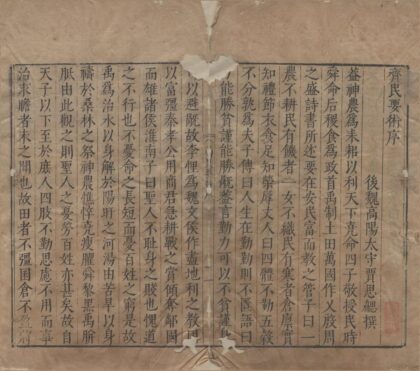 齊民要術序
後魏高陽太守賈思勰撰
蓋神農為耒耜以利天下堯命四子敬授民時
舜命后稷食為政首禹制土田萬國作乂殷周
之盛詩書所述要在安民富而教之管子曰一
農不耕民有饑者一女不織民有寒者倉廩實
知禮節衣食足知榮辱丈人曰四體不勤五穀
不分孰為夫子傳曰人生在勤勤則不匱語曰
能勝貧謹能勝禍蓋言勤力可以不貧謹
以避禍故李悝為魏文侯作盡地利之教國
以富彊秦孝公用商君急耕戰之賞傾奪鄰國
而雄諸侯淮南子曰聖人不耻身之賤也愧道
之不行也不憂命之長短而憂百姓之窮是故
禹為治水以身解於陽盱之河湯由苦旱以身
禱於桑林之祭神農憔悴堯瘦癯舜黎黑禹胼
胝由此觀之則聖人之憂勞百姓亦甚矣故自
天子以下至於庶人四肢不勤思慮不用而事
治求贍者未之聞也故田者不彊囷倉不盈